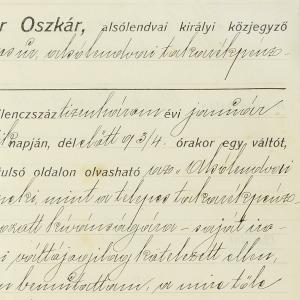 r Oszkár, alsólendvai királyi közjegyző
úr, alsólendvai takarékpénz-
lenczszáz tizenhárom évi január
napján, dél előtt 9 3/4. órakor egy váltót,
tulsó oldalon olvasható az „Alsólendvai
neki, mint a telepes takarékpénz-
kivánságára – saját iro-
váltójogilag kötelezett ellen,
bemutattam, a mire tőle